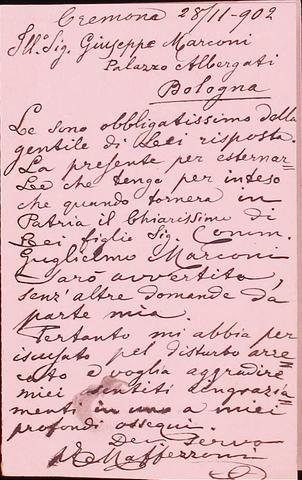 Cremona 28/11-902
Ill.º Sig. Giuseppe Marconi
Palazzo Albergati
Bologna
Le sono obbligatissimo della
gentile di Leei risposta.
La presente per esternar-
Lee che tengo per inteso
che quando tornerà in
Patria il Chiarissimo di
Leei figlio Sig. Comm.
Guglielmo Marconi
sarò avvertito,
senz'altre domande da
parte mia.
Pertanto mi abbia per
iscusato pel disturbo arre-
cato e voglia aggradire
miei sentiti ringrazia-
menti in uno a miei
profondi ossequi.
Dev. Servo
Maffezzoni